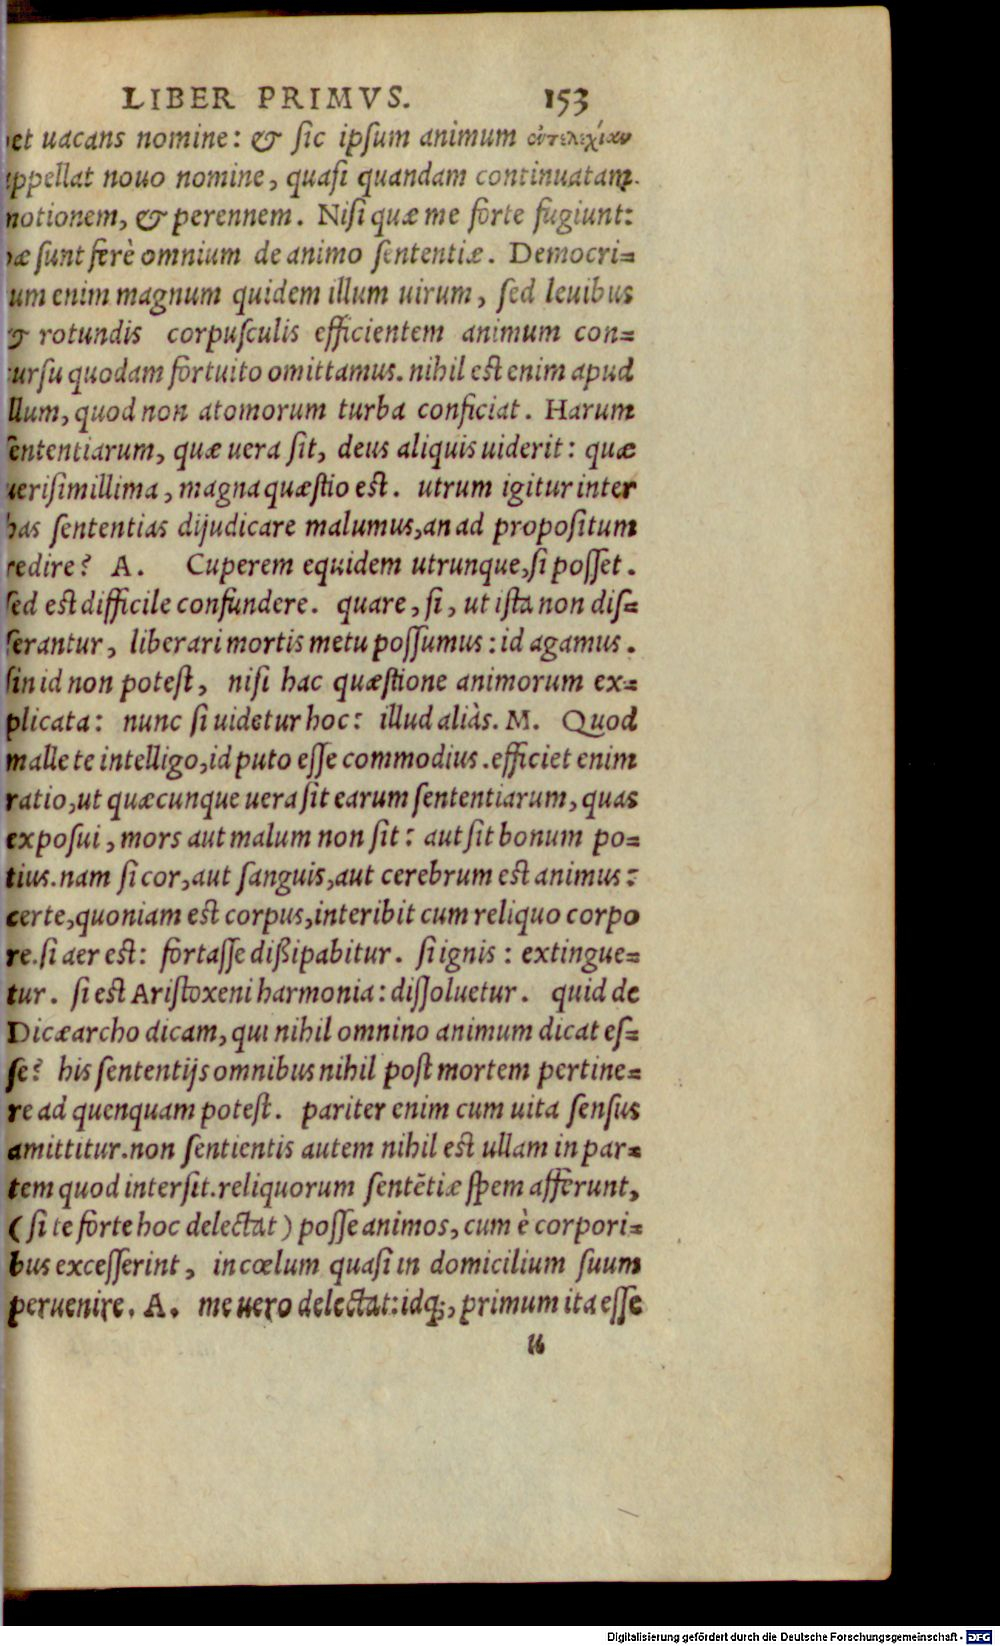 LIBER PRIMVS. 153
et uacans nomine: & sic ipsum animum
appellat nouo nomine, quasi quandam continuatam
motionem, & perennem. Nisi quæ me forte fugiunt:
hæ sunt ferè omnium de animo sententiæ. Democri=
tum enim magnum quidem illum uirum, sed leuibus
& rotundis corpusculis efficientem animum con=
cursu quodam fortuito omittamus. nihil est enim apud
illum, quod non atomorum turba conficiat. Harum
sententiarum, quæ uera sit, deus aliquis uiderit: quæ
uerisimillima, magna quæstio est. utrum igitur inter
has sententias dijudicare malumus, an ad propositum
redire? A. Cuperem equidem utrunque, si posset.
sed est difficile confundere. quare, si, ut ista non dis=
serantur, liberari mortis metu possumus: id agamus.
sin id non potest, nisi hac quæstione animorum ex=
plicata: nunc si uidetur hoc: illud aliàs. M. Quod
malle te intelligo, id puto esse commodius. efficiet enim
ratio, ut quæcunque uera sit earum sententiarum, quas
exposui, mors aut malum non sit: aut sit bonum po=
tius. nam si cor, aut sanguis, aut cerebrum est animus:
certe, quoniam est corpus, interibit cum reliquo corpo
re. si aer est: fortasse dißipabitur. si ignis: extingue=
tur. si est Aristoxeni harmonia: dissoluetur. quid de
Dicæarcho dicam, qui nihil omnino animum dicat es=
se? his sententijs omnibus nihil post mortem pertine=
re ad quenquam potest. pariter enim cum uita sensus
amittitur. non sentientis autem nihil est ullam in par=
tem quod intersit. reliquorum sentētiæ spem afferunt,
(si te forte hoc delectat) posse animos, cum è corpori=
bus excesserint, in cœlum quasi in domicilium suum
peruenire. A. me uero delectat: idq;, primum ita esse
u
Digitalisierung gefördert durch die Deutsche Forschungsgemeinschaft - DFG